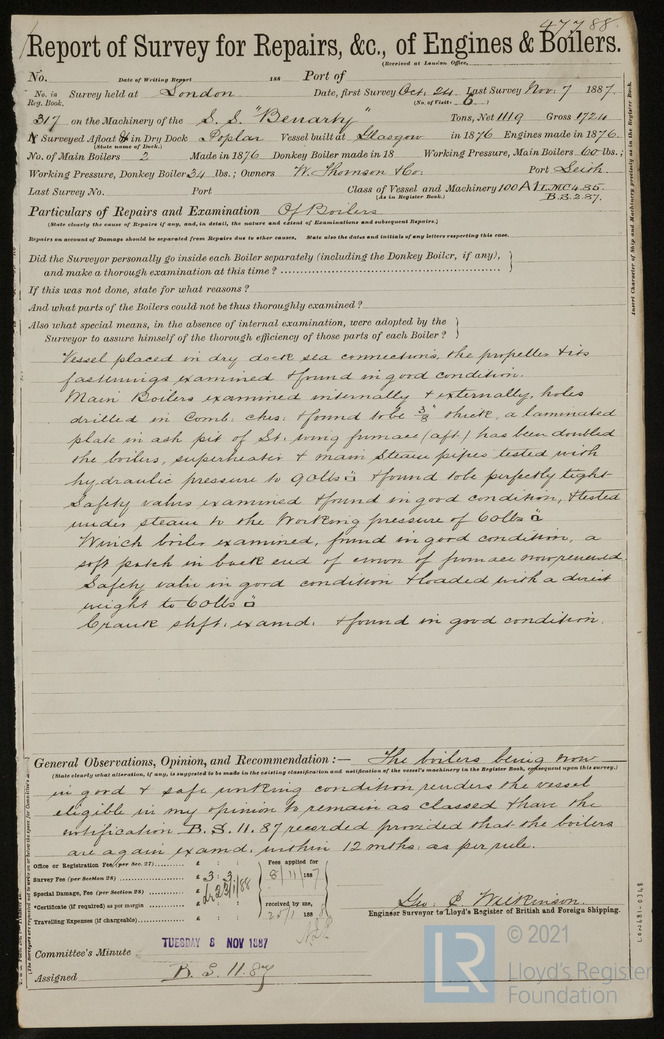 47788.
Report of Survey for Repairs, &c., of Engines & Boilers.
(Received at London Office,
No. Date of Writing Report 188 Port of
No. in Reg. Book. Survey held at London Date, first Survey Oct. 24 Last Survey Nov: 7 1887.
(No. of Visits 6)
317 on the Machinery of the S.S. "Benarty" Tons, Net 1119 Gross 1724
Surveyed Afloat & in Dry Dock Poplar Vessel built at Glasgow in 1876 Engines made in 1876.
(State name of Dock.)
No. of Main Boilers 2 Made in 1876 Donkey Boiler made in 18 Working Pressure, Main Boilers 60 lbs.;
Working Pressure, Donkey Boiler 34 lbs.; Owners W. Thomson & Co. Port Leith.
Last Survey No. Port Class of Vessel and Machinery 100A1 LMC 4.85.
(As in Register Book.) B.S. 2.87.
Particulars of Repairs and Examination Of Boilers
(State clearly the cause of Repairs if any, and, in detail, the nature and extent of Examinations and subsequent Repairs.)
Repairs on account of Damage should be separated from Repairs due to other causes. State also the dates and initials of any letters respecting this case.
Did the Surveyor personally go inside each Boiler separately (including the Donkey Boiler, if any),
and make a thorough examination at this time?
If this was not done, state for what reasons?
And what parts of the Boilers could not be thus thoroughly examined?
Also what special means, in the absence of internal examination, were adopted by the
Surveyor to assure himself of the thorough efficiency of those parts of each Boiler?
Vessel placed in dry dock sea connections, the propeller & its
fastenings examined & found in good condition.
Main Boilers examined internally & externally, holes
drilled in Comb. ches: & found to be 3/8" thick, a laminated
plate in ash pit of St. wing furnace (aft) has been doubled
the boilers, superheater & main steam pipes tested with
hydraulic pressure to 90 lbs □" & found to be perfectly tight
Safety valves examined & found in good condition, & tested
under steam to the Working pressure of 60 lbs □"
Winch boiler examined, found in good condition, a
soft patch in back end of crown of furnace now renewed.
Safety valve in good condition & loaded with a direct
weight to 60 lbs □"
Crank shft. examd. & found in good condition.
General Observations, Opinion, and Recommendation:— The boilers being now
(State clearly what alteration, if any, is suggested to be made in the existing classification and notification of the vessel's machinery in the Register Book, consequent upon this survey.)
in good & safe working condition renders the vessel
eligible in my opinion to remain as classed & have the
notification B.S. 11.87 recorded provided that the boilers
are again examd. within 12 mths. as per rule.
Office or Registration Fee (per Sec. 27) £ : : Fees applied for
Survey Fee (per Section 28) £ 3 : 3 8/11/1887
Special Damage, Fee (per Section 28) £
*Certificate (if required) as per margin £ : : received by me,
Travelling Expenses (if chargeable) £ : : 188
Geo. C. Wilkinson.
Engineer Surveyor to Lloyd's Register of British and Foreign Shipping.
Committee's Minute TUESDAY 8 NOV 1887
Assigned B.S. 11.87
Insert Character of Ship and Machinery precisely as in the Register Book.
LR
© 2021
Lloyd's Register
Foundation